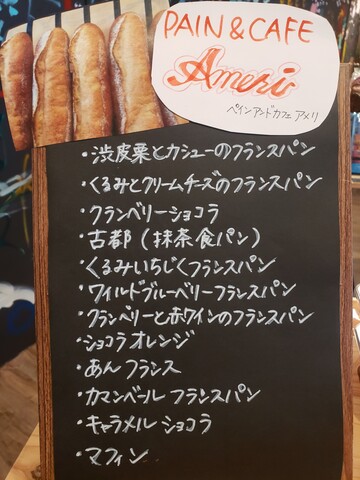 PAIN & CAFE
Ameri
ペインアンドカフェ アメリ
・渋皮栗とカシューのフランスパン
・くるみとクリームチーズのフランスパン
・クランベリーショコラ
・古都(抹茶食パン)
・くるみいちじくフランスパン
・ワイルドブルーベリーフランスパン
・クランベリーと赤ワインのフランスパン
・ショコラオレンジ
・あんフランス
・カマンベールフランスパン
・キャラメルショコラ
・マフィン